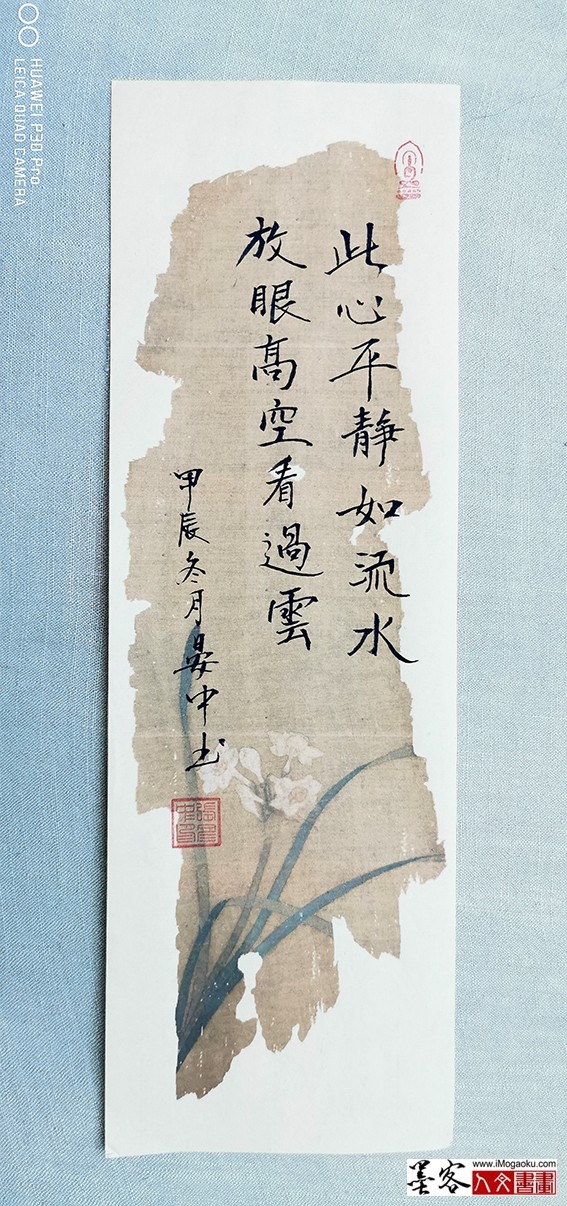 此心平靜如流水
放眼高空看過雲
甲辰冬月晏中书
HUAWEI P30 Pro
LEICA QUAD CAMERA
墨客
www.iMogaoku.com
人文書畫